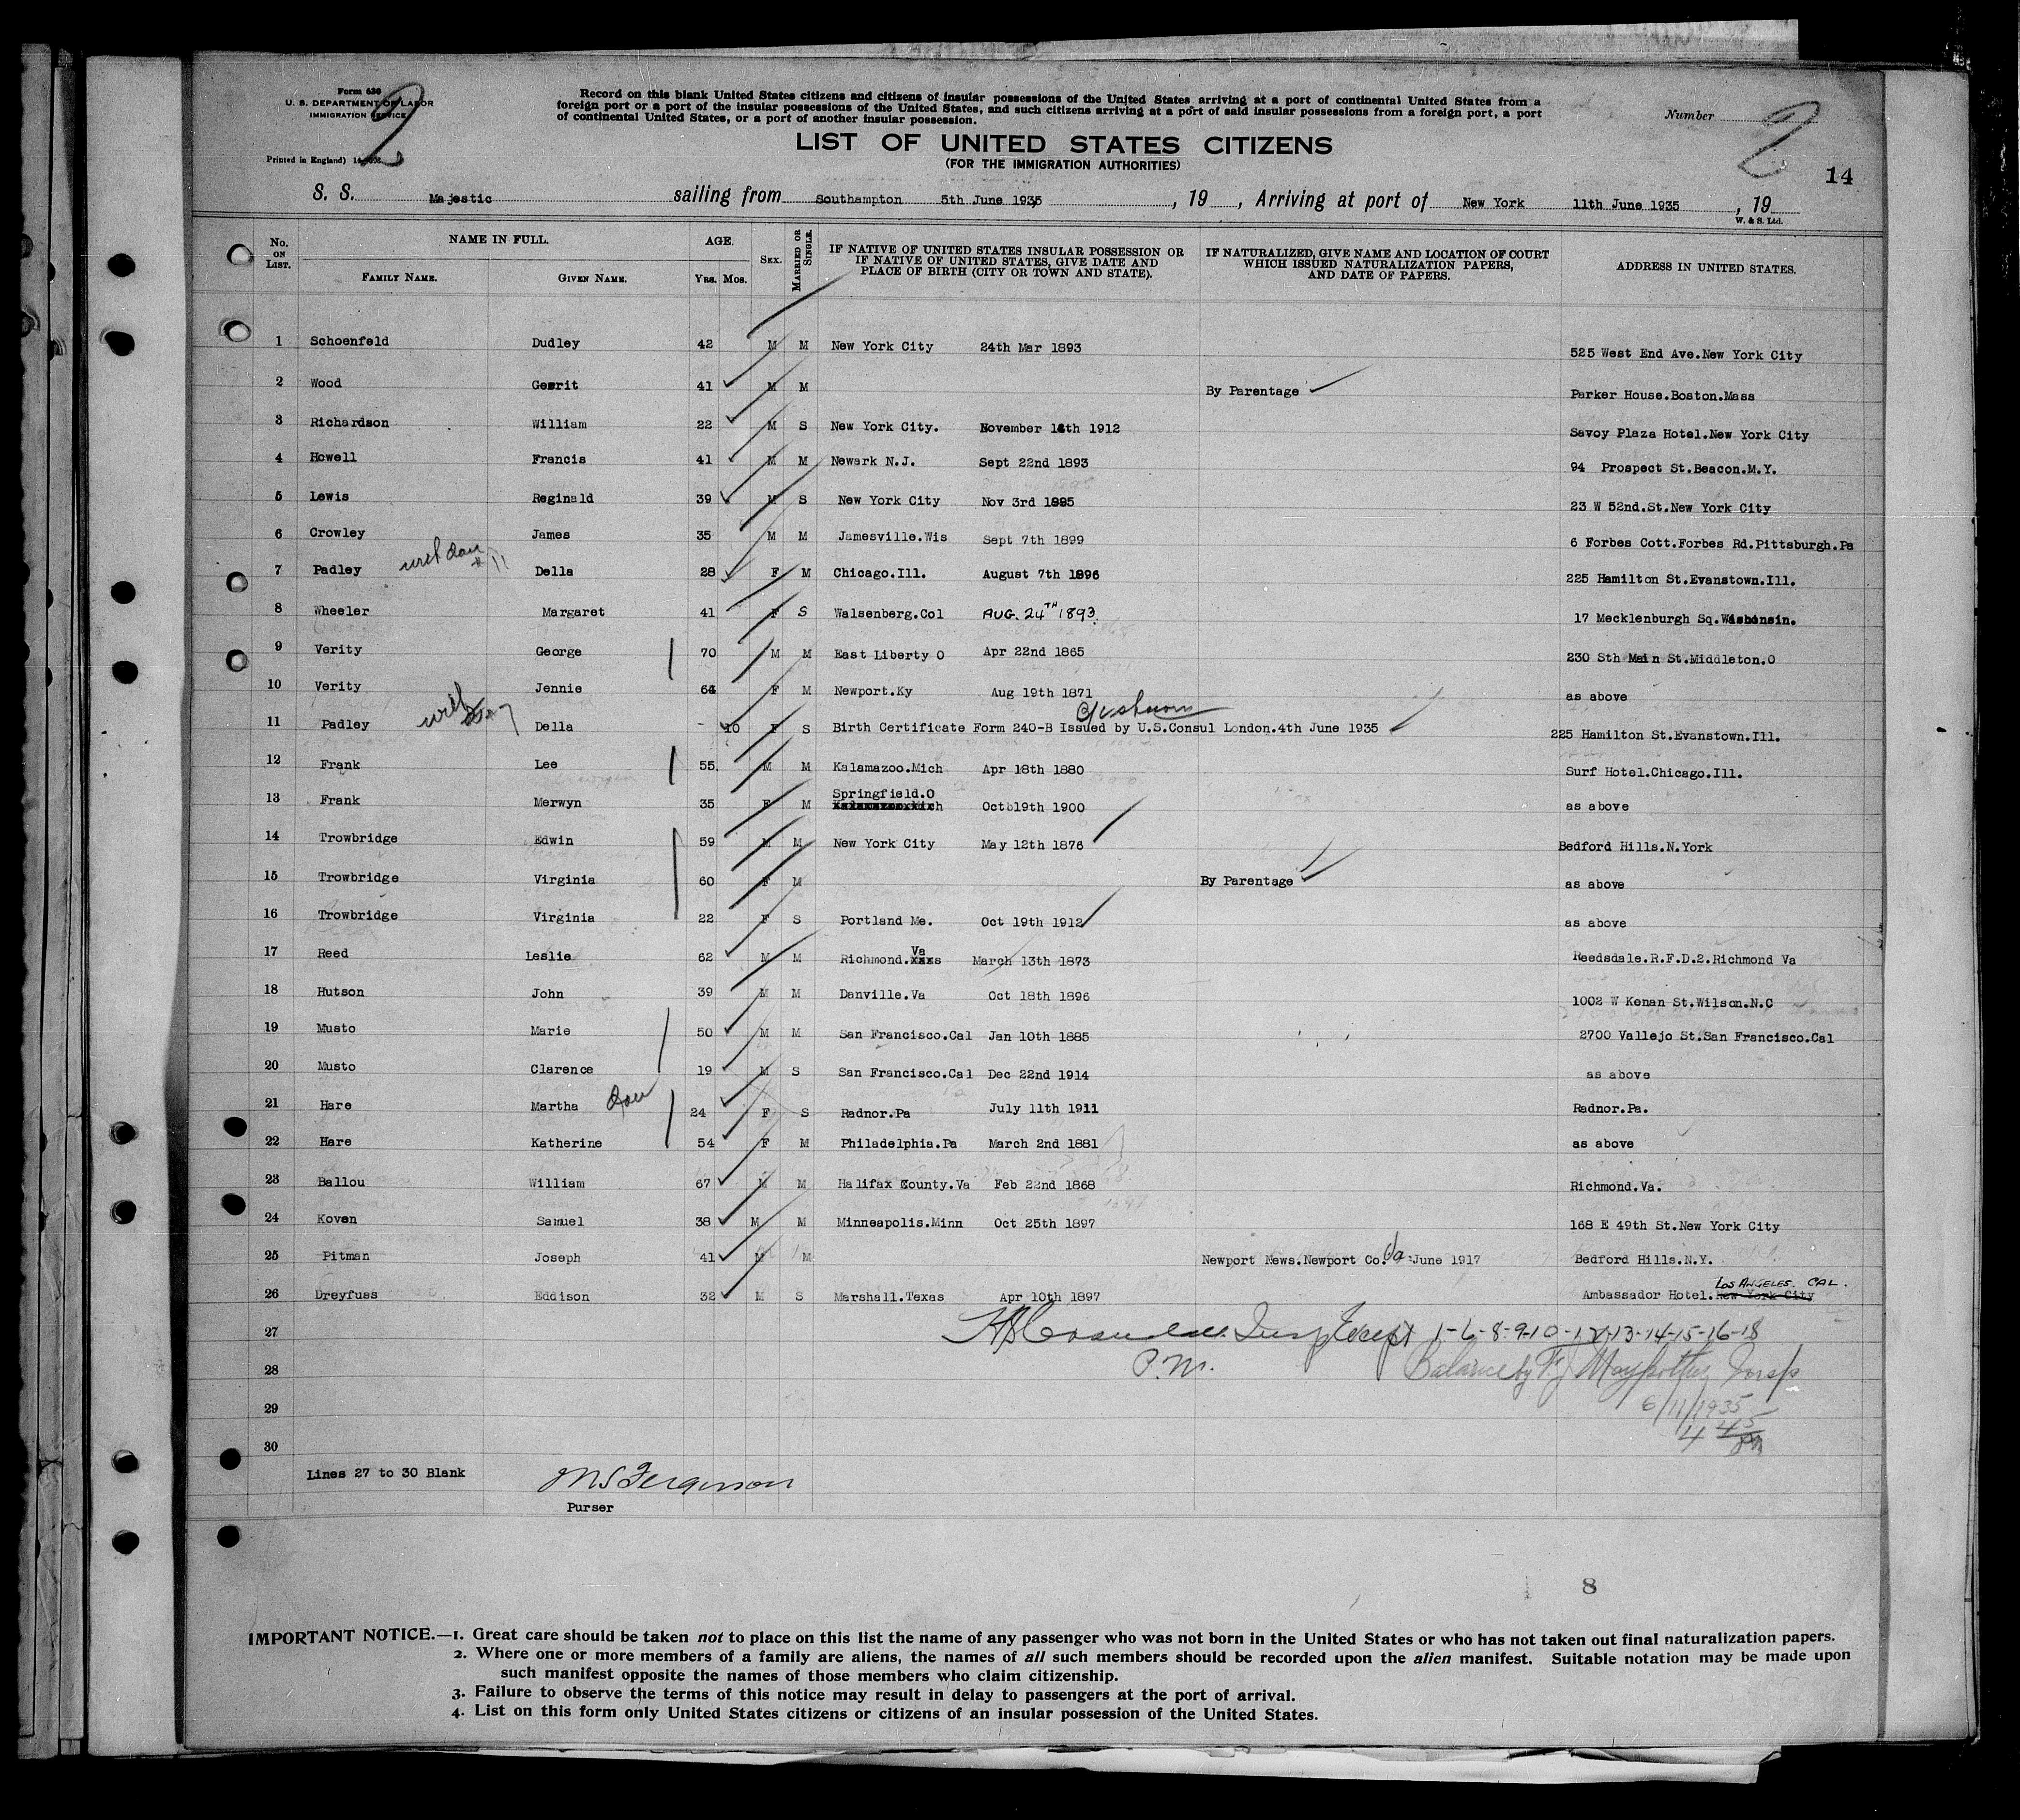 Form 630
U. S. DEPARTMENT OF LABOR
IMMIGRATION SERVICE
Printed in England)
2
Record on this blank United States citizens and citizens of insular possessions of the United States arriving at a port of continental United States from a
foreign port or a port of the insular possessions of the United States, and such citizens arriving at a port of said insular possessions from a foreign port, a port
of continental United States, or a port of another insular possession.
Number 2
LIST OF UNITED STATES CITIZENS
(FOR THE IMMIGRATION AUTHORITIES)
14
S. S. Majestic sailing from Southampton 5th June 1935, 19 , Arriving at port of New York 11th June 1935, 19
W. & S. Ltd.
No. ON LIST. NAME IN FULL. FAMILY NAME. GIVEN NAME. AGE. Yrs. Mos. SEX. MARRIED OR SINGLE. IF NATIVE OF UNITED STATES INSULAR POSSESSION OR IF NATIVE OF UNITED STATES, GIVE DATE AND PLACE OF BIRTH (CITY OR TOWN AND STATE). IF NATURALIZED, GIVE NAME AND LOCATION OF COURT WHICH ISSUED NATURALIZATION PAPERS, AND DATE OF PAPERS. ADDRESS IN UNITED STATES.
1 Schoenfeld Dudley 42 M M New York City 24th Mar 1893 525 West End Ave.New York City
2 Wood Gerrit 41 M M By Parentage Parker House.Boston.Mass
3 Richardson William 22 M S New York City. November 1 th 1912 Savoy Plaza Hotel.New York City
4 Howell Francis 41 M M Newark N.J. Sept 22nd 1893 94 Prospect St.Beacon.M.Y.
5 Lewis Reginald 39 M S New York City Nov 3rd 1895 23 W 52nd.St.New York City
6 Crowley James 35 M M Jamesville.Wis Sept 7th 1899 6 Forbes Cott.Forbes Rd.Pittsburgh.Pa
7 Padley with dau # 11 Della 28 F M Chicago.Ill. August 7th 1896 225 Hamilton St.Evanstown.Ill.
8 Wheeler Margaret 41 F S Walsenberg.Col AUG. 24TH 1893. 17 Mecklenburgh Sq.
9 Verity George 70 M M East Liberty O Apr 22nd 1865 230 Sth Main St.Middleton.O
10 Verity Jennie 64 F M Newport.Ky Aug 19th 1871 as above
11 Padley with 7 Della - 10 F S Birth Certificate Form 240-B Issued by U.S.Consul London.4th June 1935 225 Hamilton St.Evanstown.Ill.
12 Frank Lee 55 M M Kalamazoo.Mich Apr 18th 1880 Surf Hotel.Chicago.Ill.
13 Frank Merwyn 35 F M Springfield.O Oct 19th 1900 as above
14 Trowbridge Edwin 59 M M New York City May 12th 1876 Bedford Hills.N.York
15 Trowbridge Virginia 60 F M By Parentage as above
16 Trowbridge Virginia 22 F S Portland Me. Oct 19th 1912 as above
17 Reed Leslie 62 M M Richmond.Va March 13th 1873 Reedsdale.R.F.D.2.Richmond Va
18 Hutson John 39 M M Danville.Va Oct 18th 1896 1002 W Kenan St.Wilson.N.C
19 Musto Marie 50 M M San Francisco.Cal Jan 10th 1885 2700 Vallejo St.San Francisco.Cal
20 Musto Clarence 19 M S San Francisco.Cal Dec 22nd 1914 as above
21 Hare Martha dau 24 F S Radnor.Pa July 11th 1911 Radnor.Pa.
22 Hare Katherine 54 F M Philadelphia.Pa March 2nd 1881 as above
23 Ballou William 67 M M Halifax County.Va Feb 22nd 1868 Richmond.Va.
24 Koven Samuel 38 M M Minneapolis.Minn Oct 25th 1897 168 E 49th St.New York City
25 Pitman Joseph 41 M M Newport News.Newport Co. Va June 1917 Bedford Hills.N.Y.
26 Dreyfuss Eddison 32 M S Marshall.Texas Apr 10th 1897 Ambassador Hotel.New York City LOS ANGELES. CAL.
27 Insp Except 1-6-8-9-10-12-13-14-15-16-18
28 P.M. Balance by Insp
29 6/11/1935
30 4 45 PM
Lines 27 to 30 Blank
Ferguson
Purser
8
IMPORTANT NOTICE.—1. Great care should be taken not to place on this list the name of any passenger who was not born in the United States or who has not taken out final naturalization papers.
2. Where one or more members of a family are aliens, the names of all such members should be recorded upon the alien manifest. Suitable notation may be made upon
such manifest opposite the names of those members who claim citizenship.
3. Failure to observe the terms of this notice may result in delay to passengers at the port of arrival.
4. List on this form only United States citizens or citizens of an insular possession of the United States.